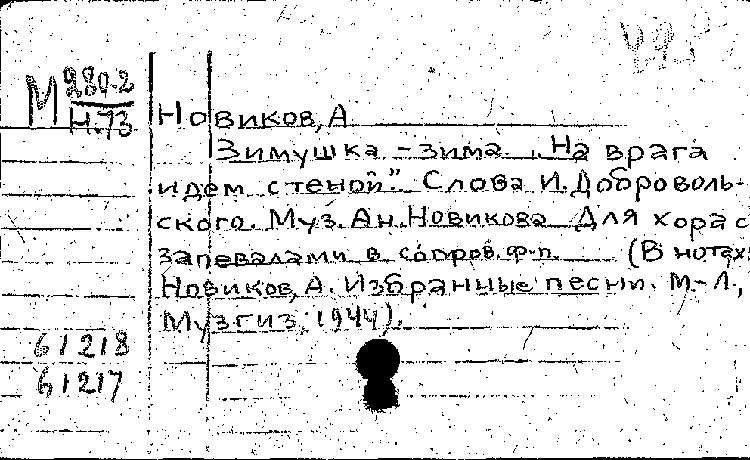 М 280-2
Н.73
Новиков, А.
Зимушка - зима. „На врага
идем стеной". Слова И. Доброволь-
ского. Муз. Ан. Новикова. Для хора с
запевалами в сопров. ф-п. (В нотах:
Новиков, А. Избранные песни. М.-Л.,
Музгиз, 1944).
61218
61217